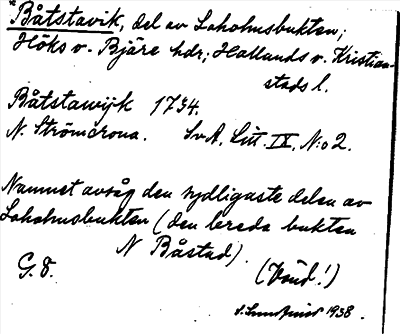 *Båtstavik, del av Laholmsbukten;
Höks o. Bjäre hdr; Hallands o. Kristian-
stads l.
Båtstawijk 1734.
N. Strömcrona. SvA, Litt. IX, N:o 2.
Namnet avsåg den sydligaste delen av
Laholmsbukten (den breda bukten
N Båstad).
G. F. (Könd!)
1938.